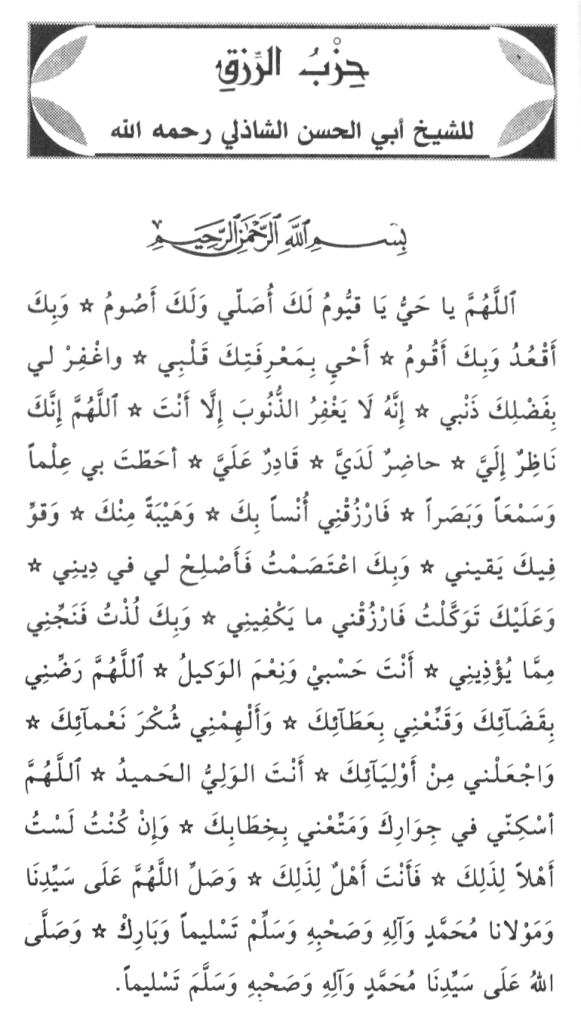 حِزْبُ الرِّزقِ
للشيخ أبي الحسن الشاذلي رحمه الله
بِسْمِ ٱللَّهِ ٱلرَّحْمَٰنِ ٱلرَّحِيمِ
ٱللَّهُمَّ يا حَيُّ يَا قيُّومُ لَكَ أُصَلّي وَلَكَ أَصُومُ ☆ وَبِكَ
أَقْعُدُ وَبِكَ أَقُومُ ☆ أَحْيِ بِمَعْرِفَتِكَ قَلْبِي ☆ واغْفِرْ لي
بِفَضْلِكَ ذَنْبي ☆ إِنَّهُ لَا يَغْفِرُ الذُّنُوبَ إِلَّا أَنْتَ ☆ ٱللَّهُمَّ إِنَّكَ
نَاظِرٌ إِلَيَّ ☆ حاضِرٌ لَدَيَّ ☆ قَادِرٌ عَلَيَّ ☆ أحَطّتَ بي عِلْماً
وَسَمْعَاً وَبَصَراً ☆ فَارْزُقْنِي أُنْساً بِكَ ☆ وَهَيْبَةً مِنْكَ ☆ وَقوِّ
فِيكَ يَقيني ☆ وَبِكَ اعْتَصَمْتُ فَأَصْلِحْ لي في دِينِي ☆
وَعَلَيْكَ تَوَكَّلْتُ فَارْزُقْني ما يَكْفِينِي ☆ وَبِكَ لُذْتُ فَنَجِّنِي
مِمَّا يُؤْذِينِي ☆ أَنْتَ حَسْبيْ وَنِعْمَ الوَكيلُ ☆ ٱللَّهُمَّ رَضِّنِي
بِقَضَآئِكَ وَقَنِّعْنِي بِعَطَآئِكَ ☆ وَأَلْهِمْنِي شُكْرَ نَعْمآئِكَ ☆
وَاجْعَلْني مِنْ أَوْلِيَآئِكَ ☆ أَنْتَ الوَلِيُّ الحَميدُ ☆ ٱللَّهُمَّ
أسْكِنّي في جِوَارِكَ وَمَتِّعْني بِخِطَابِكَ ☆ وَإِنْ كُنْتُ لَسْتُ
أَهْلاً لِذَلِكَ ☆ فَأَنْتَ أَهْلٌ لِذَلِكَ ☆ وَصَلِّ اللَّهُمَّ عَلَى سَيِّدِنَا
وَمَوْلانا مُحَمَّدٍ وَآلِهِ وَصَحْبِهِ وَسَلِّمْ تَسْليماً وَبَارِكْ ☆ وَصَلَّى
اللهُ عَلَى سَيِّدِنَا مُحَمَّدٍ وَآلِهِ وَصَحْبِهِ وَسَلَّمَ تَسْليماً.